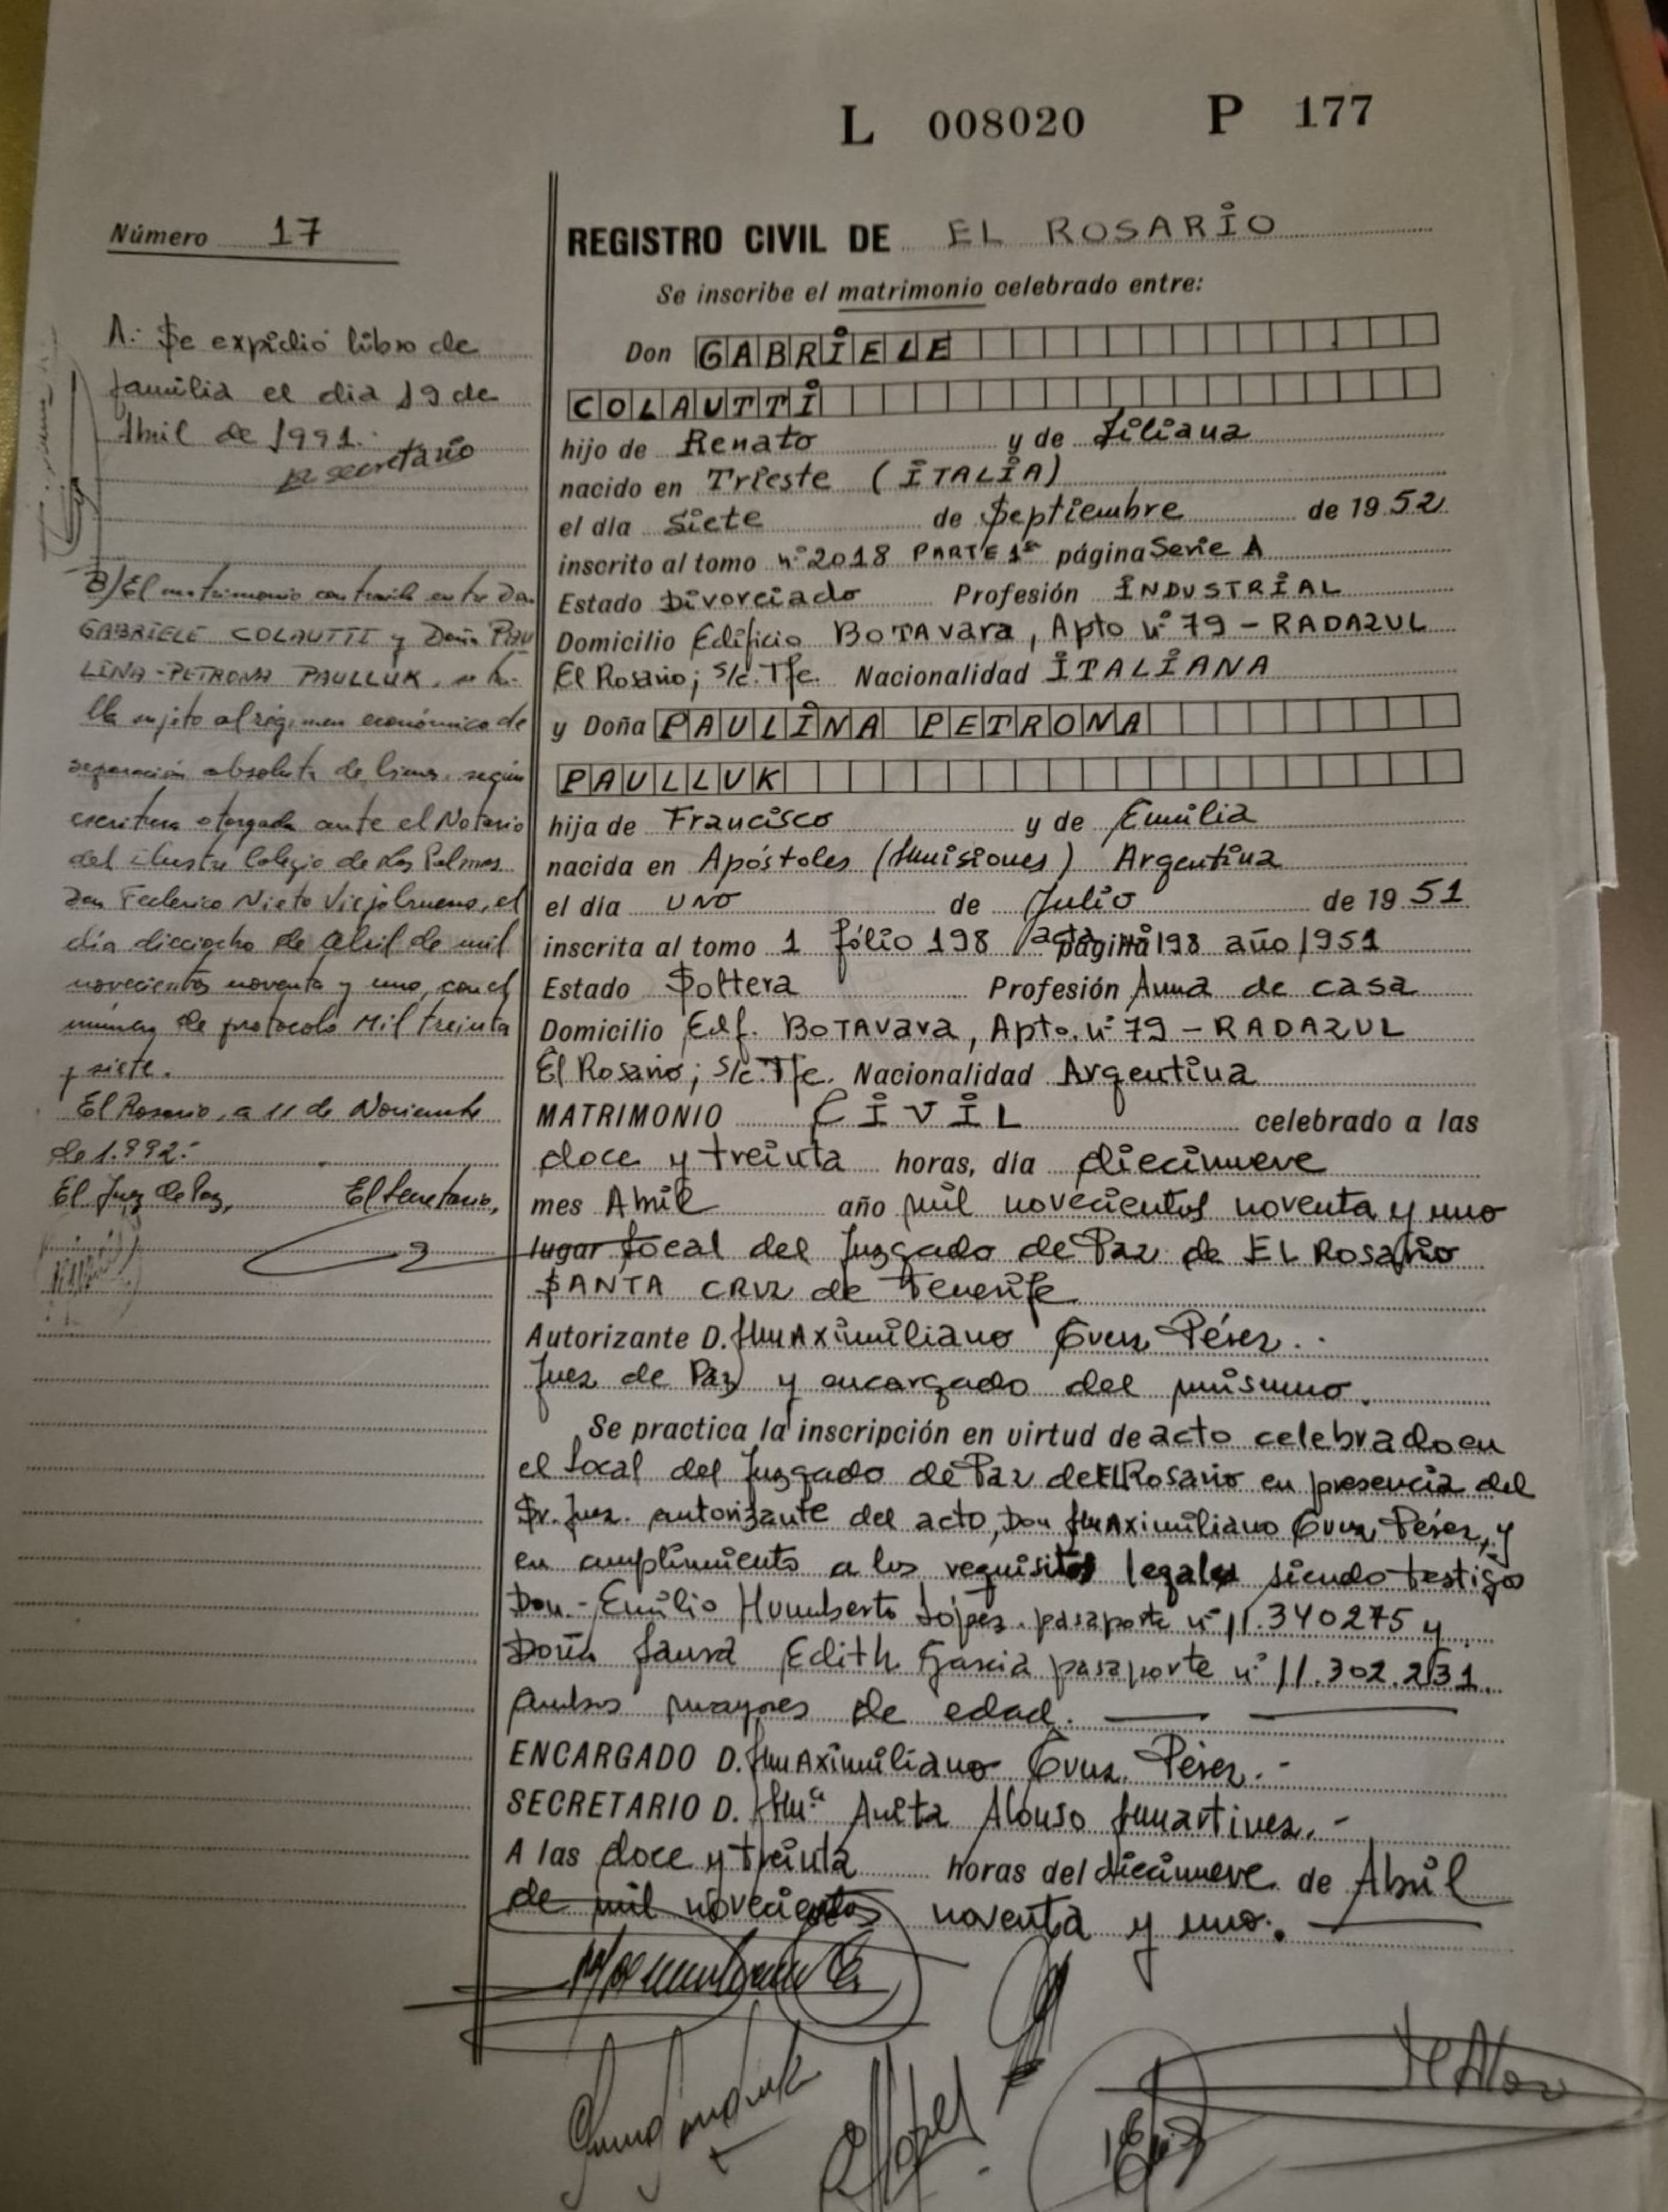 L 008020 P 177
Número 17
A: Se expidió libro de
familia el dia 19 de
Abril de 1991.
secretario
B) El matrimonio contraído entre Don
GABRIELE COLAUTTI y Doña PAU
LINA-PETRONA PAULLUK, se ha-
lla sujeto al régimen económico de
separación absoluta de bienes, según
escritura otorgada ante el Notario
del ilustre Colegio de Las Palmas
Don Federico Nieto Viejobueno, el
día dieciocho de abril de mil
novecientos noventa y uno, con el
número de protocolo Mil treinta
y siete.
El Rosario, a 11 de Noviembre
de 1.992.-
El Juez de Paz, El Secretario,
REGISTRO CIVIL DE EL ROSARIO
Se inscribe el matrimonio celebrado entre:
Don GABRIELE
COLAUTTI
hijo de Renato y de Liliana
nacido en Trieste (ITALIA)
el día Siete de Septiembre de 1952
inscrito al tomo nº 2018 PARTE 1ª página Serie A
Estado Divorciado Profesión INDUSTRIAL
Domicilio Edificio BOTAvara, Apto nº 79 - RADAZUL
El Rosario; S/c. Tfe. Nacionalidad ITALIANA
y Doña PAULINA PETRONA
PAULLUK
hija de Francisco y de Emilia
nacida en Apóstoles (Misiones) Argentina
el día UNO de Julio de 1951
inscrita al tomo 1 fólio 198 acta página 198 año 1951
Estado Soltera Profesión Ama de casa
Domicilio Edf. BOTAvara, Apto. nº 79 - RADAZUL
El Rosario; S/c. Tfe. Nacionalidad Argentina
MATRIMONIO CIVIL celebrado a las
doce y treinta horas, día diecinueve
mes Abril año mil novecientos noventa y uno
lugar Local del Juzgado de Paz de EL Rosario
SANTA CRUZ de Tenerife
Autorizante D. Maximiliano Cruz Pérez.-
Juez de Paz y encargado del mismo.
Se practica la inscripción en virtud de acto celebrado en
el Local del Juzgado de Paz de El Rosario en presencia del
Sr. Juez autorizante del acto, Don Maximiliano Cruz Pérez, y
en cumplimiento a los requisitos legales siendo testigos
Don.- Emilio Humberto López. pasaporte nº 11.340275 y
Doña Laura Edith Garcia pasaporte nº 11.302.231.
Ambos mayores de edad.
ENCARGADO D. Maximiliano Cruz Pérez.-
SECRETARIO D. Mª Anita Alonso Martinez.-
A las doce y treinta horas del diecinueve de Abril
de mil novecientos noventa y uno.